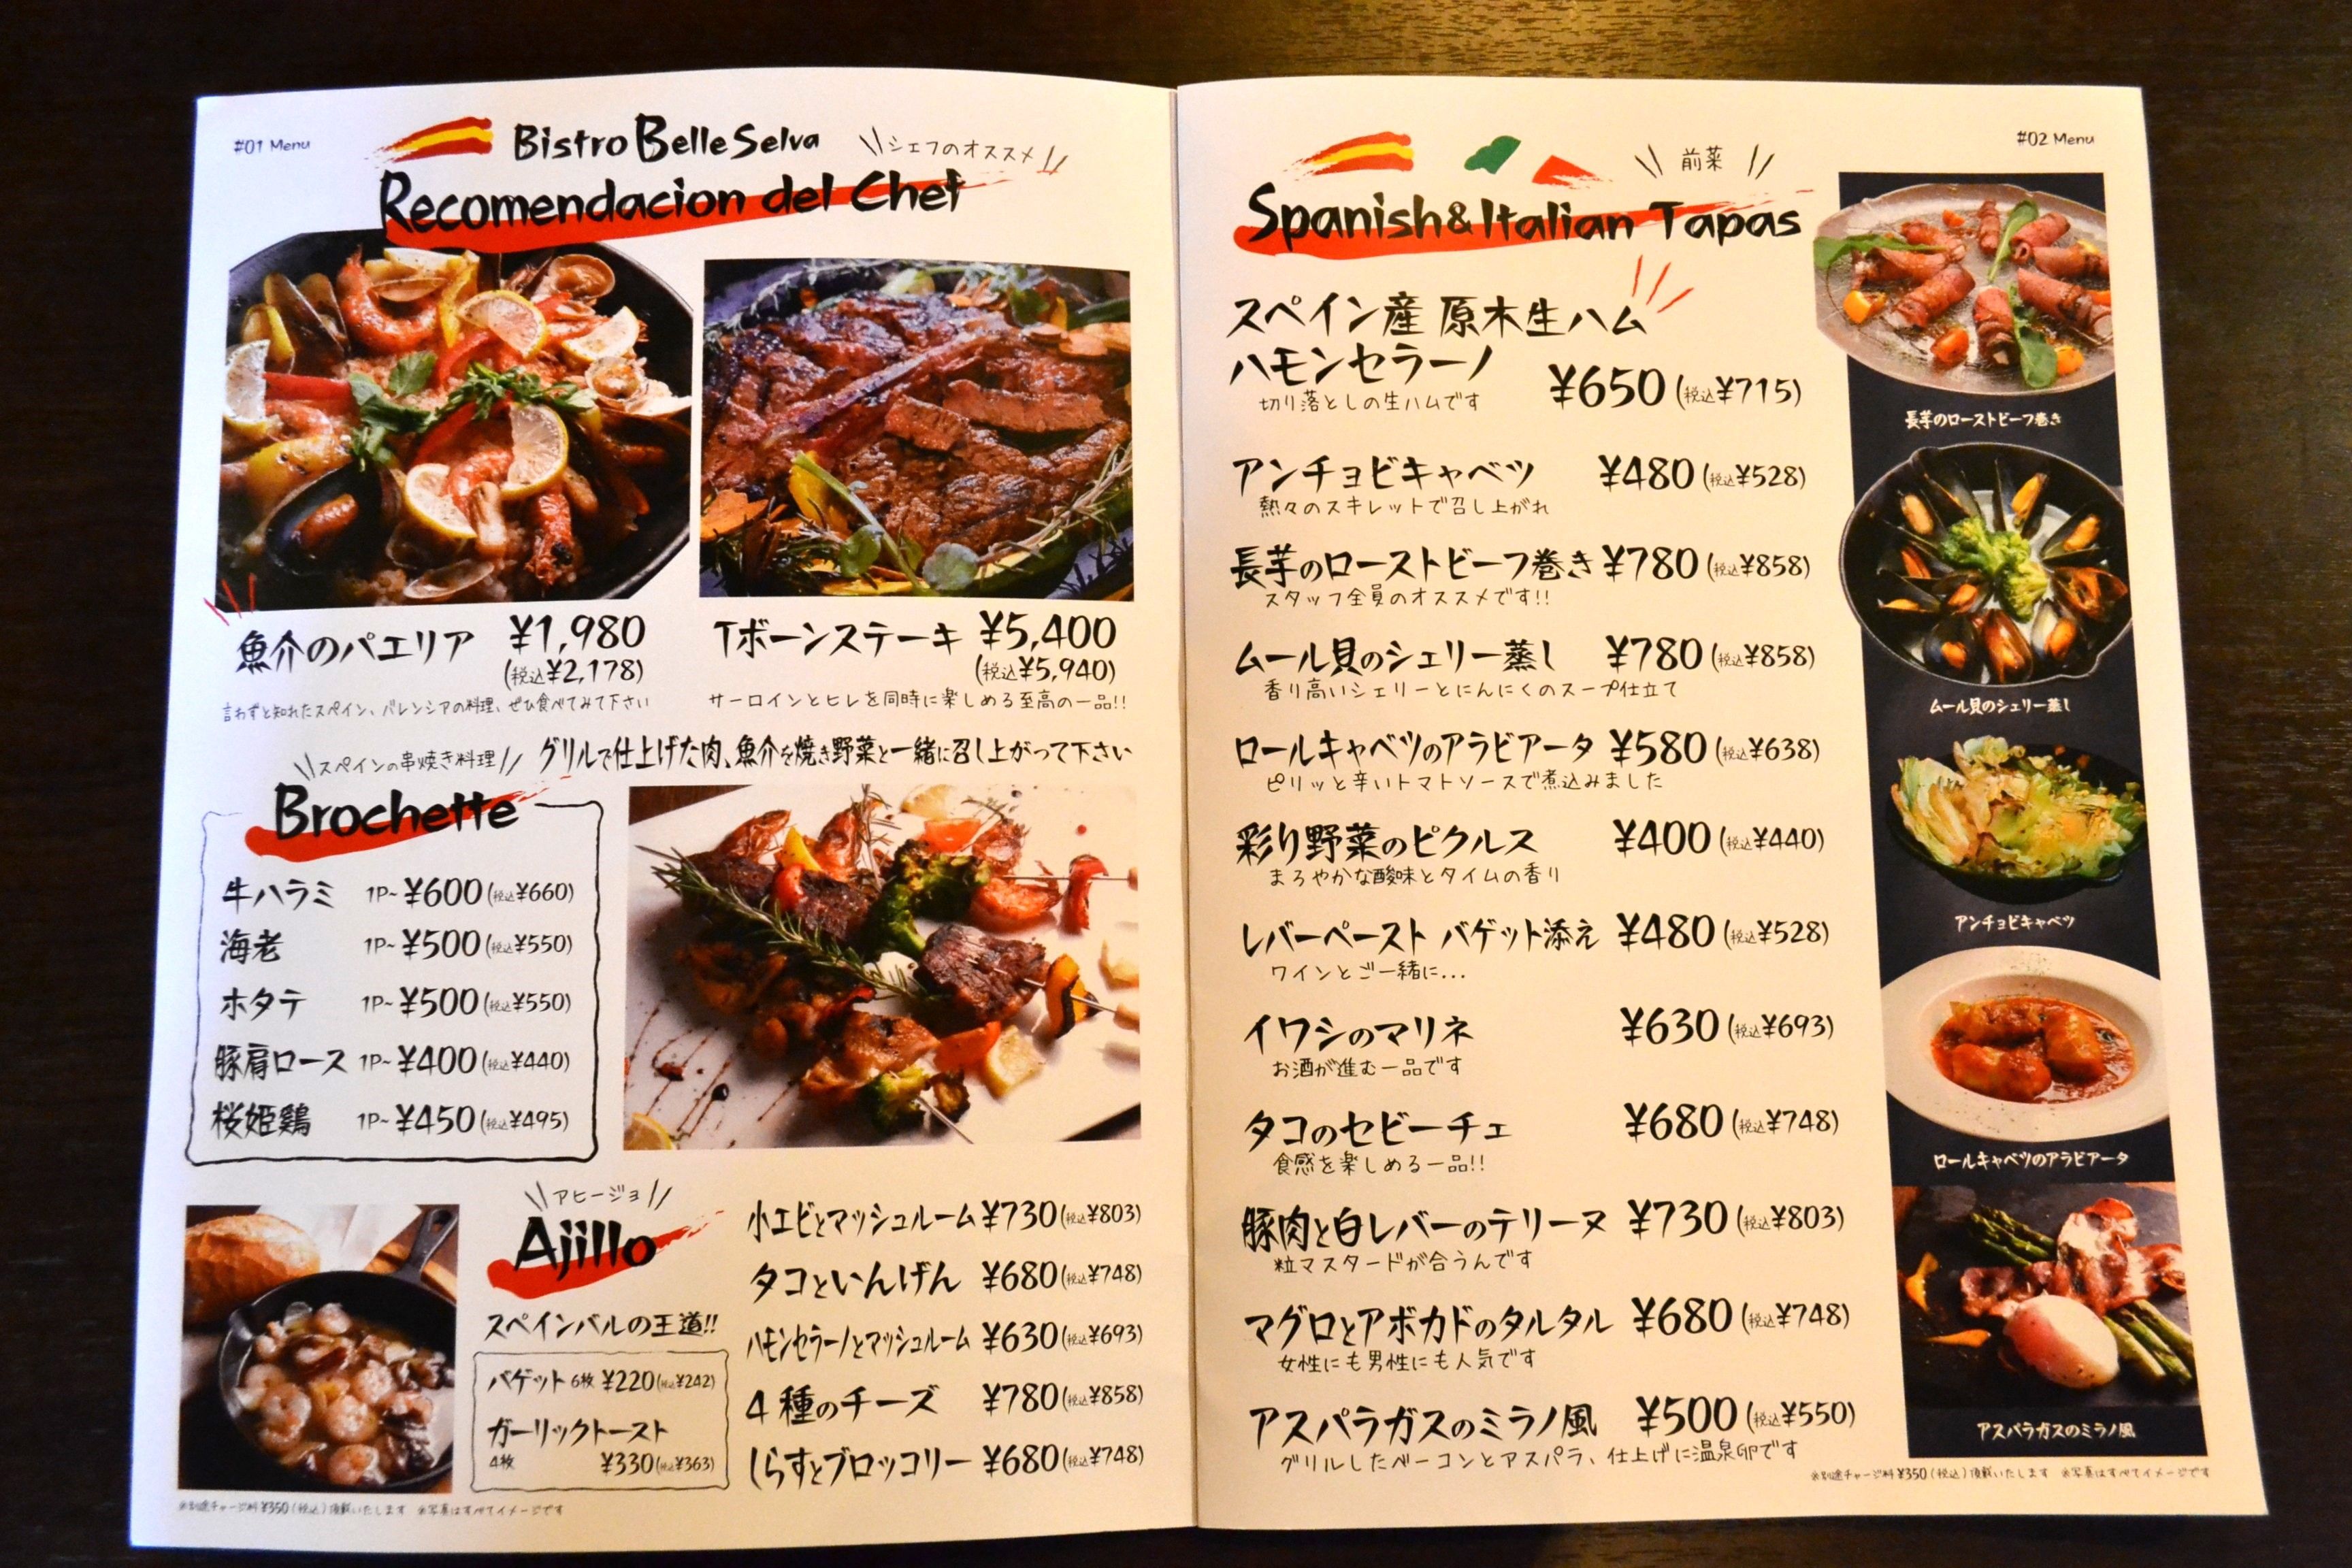 #01 Menu
Bistro Belle Selva
シェフのオススメ
Recomendacion del Chef
魚介のパエリア ¥1,980
(税込¥2,178)
言わずと知れたスペイン、バレンシアの料理、ぜひ食べてみて下さい
Tボーンステーキ ¥5,400
(税込¥5,940)
サーロインとヒレを同時に楽しめる至高の一品!!
スペインの串焼き料理 グリルで仕上げた肉、魚介を焼き野菜と一緒に召し上がって下さい
Brochette
牛ハラミ 1P~ ¥600 (税込¥660)
海老 1P~ ¥500 (税込¥550)
ホタテ 1P~ ¥500 (税込¥550)
豚肩ロース 1P~ ¥400 (税込¥440)
桜姫鶏 1P~ ¥450 (税込¥495)
アヒージョ
Ajillo
スペインバルの王道!!
バゲット 6枚 ¥220 (税込¥242)
ガーリックトースト
4枚 ¥330 (税込¥363)
小エビとマッシュルーム ¥730 (税込¥803)
タコといんげん ¥680 (税込¥748)
ハモンセラーノとマッシュルーム ¥630 (税込¥693)
4種のチーズ ¥780 (税込¥858)
しらすとブロッコリー ¥680 (税込¥748)
※別途チャージ料¥350(税込)頂戴いたします ※写真はすべてイメージです
#02 Menu
前菜
Spanish&Italian Tapas
スペイン産 原木生ハム
ハモンセラーノ ¥650 (税込¥715)
切り落としの生ハムです
アンチョビキャベツ ¥480 (税込¥528)
熱々のスキレットで召し上がれ
長芋のローストビーフ巻き ¥780 (税込¥858)
スタッフ全員のオススメです!!
ムール貝のシェリー蒸し ¥780 (税込¥858)
香り高いシェリーとにんにくのスープ仕立て
ロールキャベツのアラビアータ ¥580 (税込¥638)
ピリッと辛いトマトソースで煮込みました
彩り野菜のピクルス ¥400 (税込¥440)
まろやかな酸味とタイムの香り
レバーペースト バゲット添え ¥480 (税込¥528)
ワインとご一緒に...
イワシのマリネ ¥630 (税込¥693)
お酒が進む一品です
タコのセビーチェ ¥680 (税込¥748)
食感を楽しめる一品!!
豚肉と白レバーのテリーヌ ¥730 (税込¥803)
粒マスタードが合うんです
マグロとアボカドのタルタル ¥680 (税込¥748)
女性にも男性にも人気です
アスパラガスのミラノ風 ¥500 (税込¥550)
グリルしたベーコンとアスパラ、仕上げに温泉卵です
長芋のローストビーフ巻き
ムール貝のシェリー蒸し
アンチョビキャベツ
ロールキャベツのアラビアータ
アスパラガスのミラノ風
※別途チャージ料¥350(税込)頂戴いたします ※写真はすべてイメージです